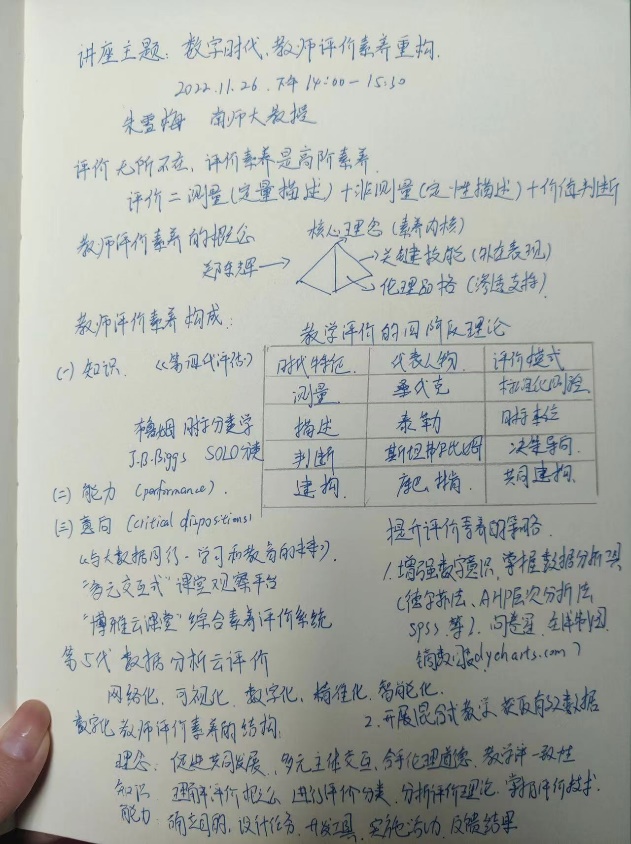 讲座主题：数字时代，教师评价素养重构.
2022.11.26 下午 14:00－15:30
朱雪梅 南师大教授
评价无所不在，评价素养是高阶素养
评价二测量(定量描述)＋非测量(定性描述)＋价值判断
教师评价素养的概念
郑东辉→
核心理念(素养内核)
关键技能(外在表现)
伦理品格(渗透支持)
教师评价素养构成：
(一) 知识. 《第四代评估》
布鲁姆 目标分类学
J.B.Biggs SOLO分类
(二) 能力 (performance).
(三) 意向 (critical dispositions)
教学评价的四阶段理论
时代特征. 代表人物. 评价模式
测量 桑代克 标准化测验
描述 泰勒 目标本位
判断 斯坦弗尔比姆 决策导向.
建构. 枯巴、林肯 共同建构.
《与大数据同行－学习和教育的未来》.
"多元交互式"课堂观察平台
"博雅云课堂"综合素养评价系统
第5代 数据分析云评价
网络化，可视化，数字化，精准化，智能化.
提升评价素养的策略
1.增强数字意识，掌握数据分析工具
(德尔菲法、AHP层次分析法
SPSS 等)、问卷星、
dycharts.com)
2.开展混合式教学，获取有效数据
数字化教师评价素养的结构.
理念: 促进共同发展，多元主体交互，合乎伦理道德，教学评一致性
知识 理解评价概念 进行评价分类，分析评价理论，掌握评价技术.
能力: 确立目的，设计任务，开发工具，实施活动，反馈结果